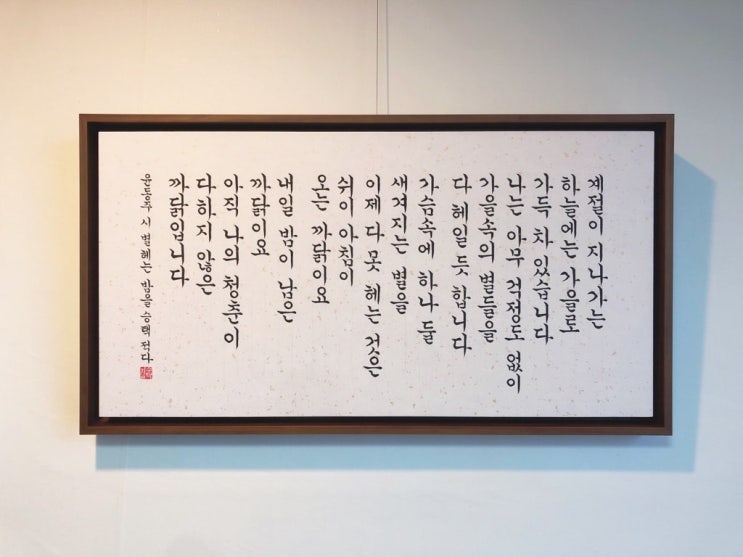 계절이 지나가는
하늘에는 가을로
가득 차 있습니다
나는 아무 걱정도 없이
가을속의 별들을
다 헤일 듯 합니다
가슴속에 하나 둘
새겨지는 별을
이제 다 못 헤는 것은
쉬이 아침이
오는 까닭이요
내일 밤이 남은
까닭이요
아직 나의 청춘이
다 하지 않은
까닭입니다
윤동주 시 별헤는 밤을 승택 적다